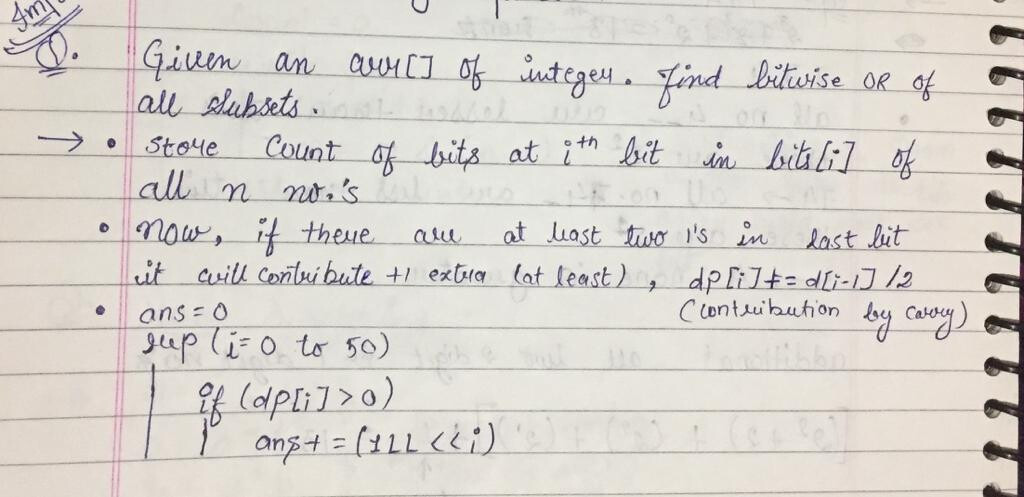 Imp
①. Given an arr[] of integer. Find bitwise OR of
all subsets.
→ • store Count of bits at ith bit in bits[i] of
all n no.'s
• now, if there are at least two 1's in last bit
it will contribute +1 extra (at least), dp[i] += d[i-1] /2
(contribution by carry)
• ans = 0
rep (i= 0 to 50)
if (dp[i] > 0)
ans+ = (1LL << i)